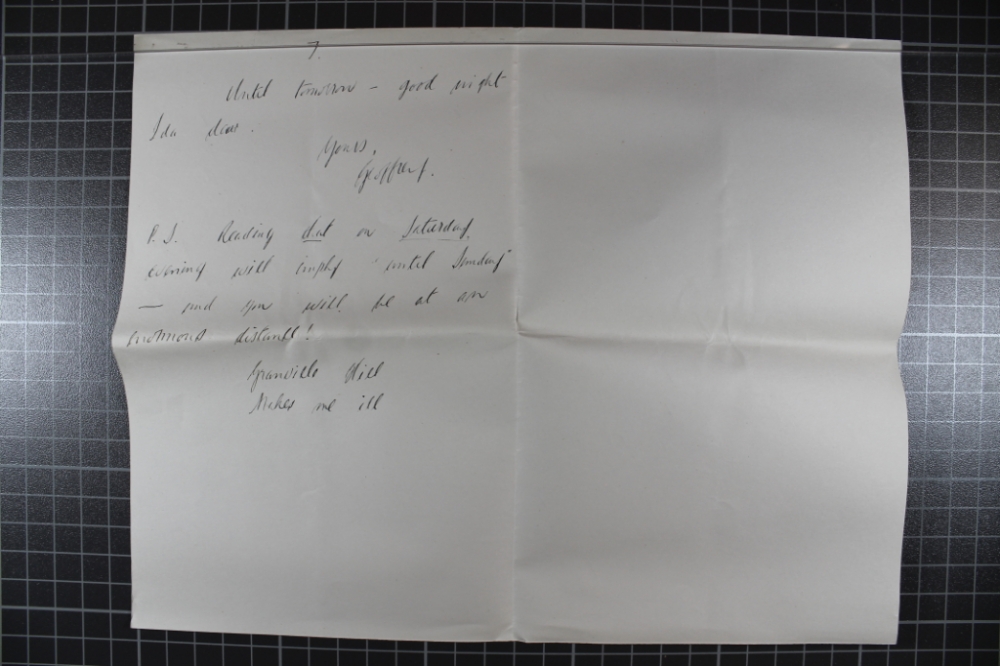 7.
Until tomorrow – good night
Ida dear.
Yours,
Geoffrey.
P.S. Reading that on Saturday
evening will imply "until Sunday"
— and you will be at an
enormous distance!
Granville Hill
Makes me ill